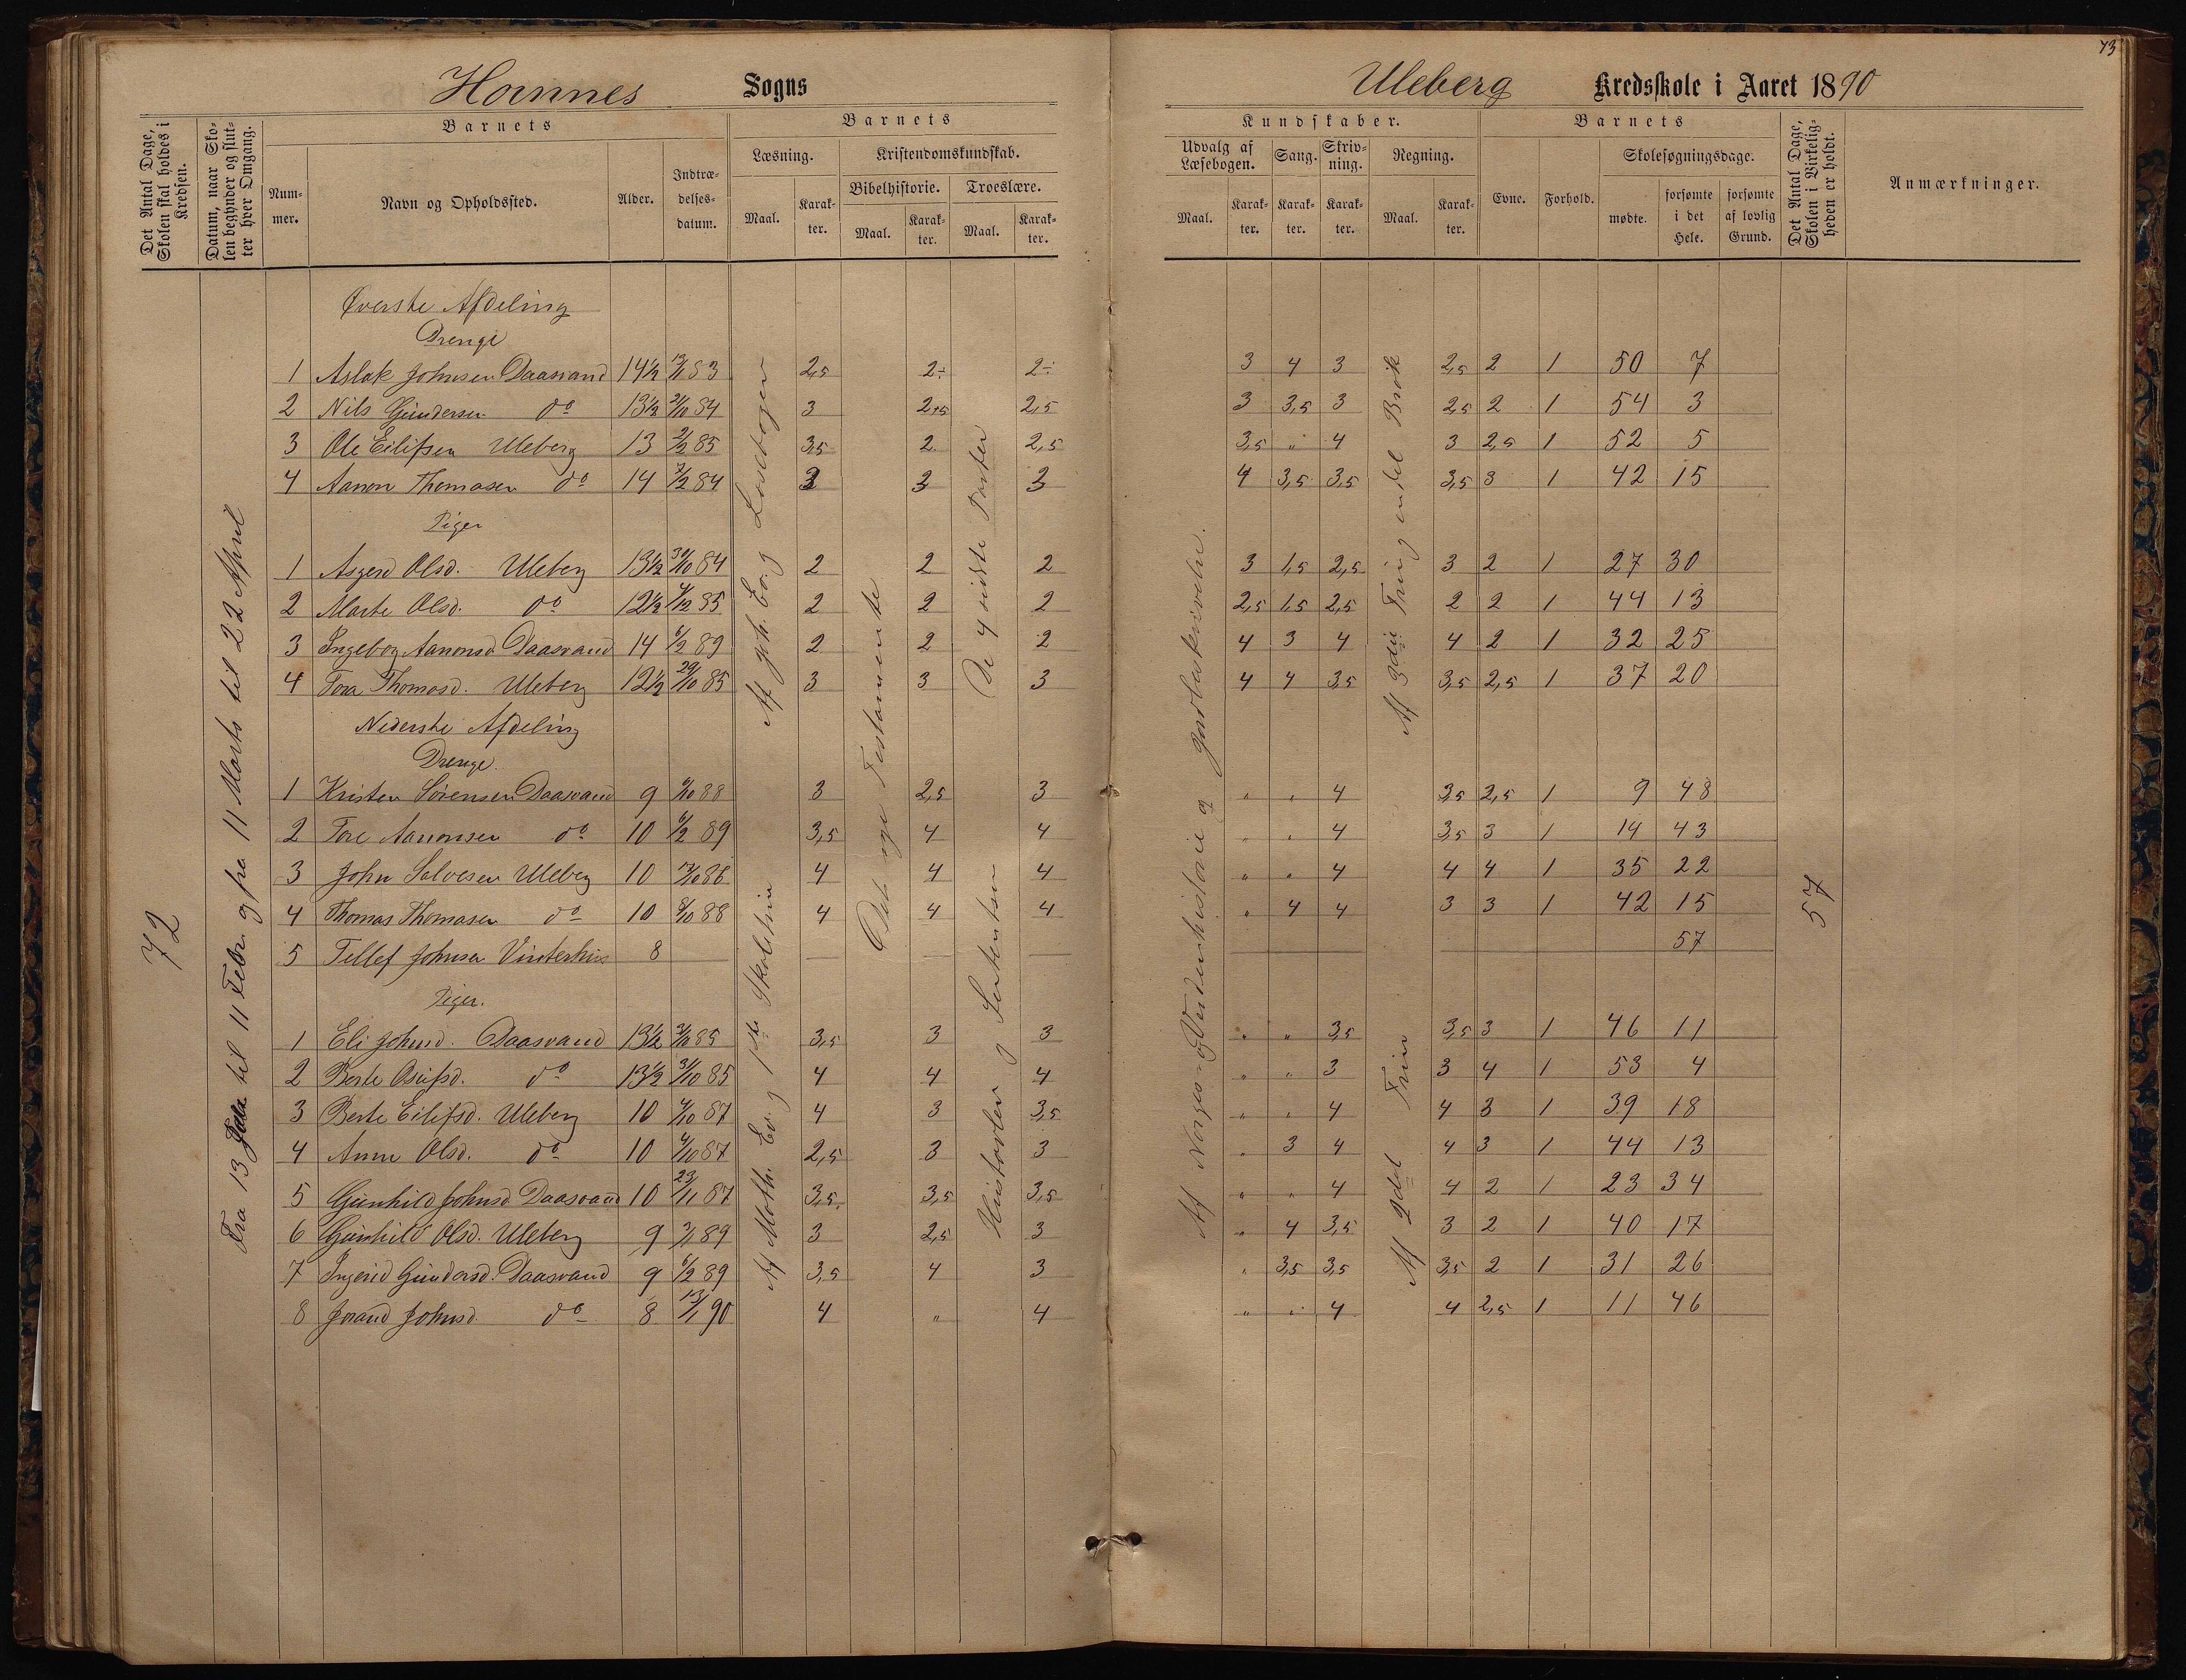 73
Hornnes Sogns
Uleberg Kredsskole i Aaret 1890
Det Antal Dage, Skolen skal holdes i Kredsen.
Datum, naar Skolen begynder og slutter hver Omgang.
Barnets
Nummer.
Navn og Opholdssted.
Alder.
Indtrædelsesdatum.
Barnets
Læsning.
Kristendomskundskab.
Bibelhistorie.
Troeslære.
Maal.
Karakter.
Maal.
Karakter.
Maal.
Karakter.
Kundskaber.
Udvalg af Læsebogen.
Sang.
Skrivning.
Regning.
Maal.
Karakter.
Karakter.
Karakter.
Maal.
Karakter.
Barnets
Evne.
Forhold.
Skolesøgningsdage.
mødte.
forsømte i det Hele.
forsømte af lovlig Grund.
Det Antal Dage, Skolen i Virkeligheden er holdt.
Anmærkninger.
72
til 11 Febr. og fra 11 Marts til 22 April
Øverste Afdeling
Drenge
1 Aslak Johnsen Daasvand 14½ 83 2,5 2÷ 2÷ 3 4 3 2,5 2 1 50 7
2 Nils Gundersen do 13½ 21/10 84 3 2,5 2,5 3 3,5 3 2,5 2 1 54 3
3 Ole Eilifsen Uleberg 13 2/2 85 3,5 2 2,5 3,5 " 4 3 2,5 1 52 5
4 Aanon Thomasen do 14 84 3 3 3 4 3,5 3,5 3,5 3 1 42 15
Piger
1 Asgerd Olsd. Uleberg 13½ 30/10 84 2 2 2 3 1,5 2,5 3 2 1 27 30
2 Marte Olsd. do 12½ 85 2 2 2 2,5 1,5 2,5 2 2 1 44 13
3 Ingeborg Aanonsd Daasvand 14 6/2 89 2 2 2 4 3 4 4 2 1 32 25
4 Tora Thomasd. Uleberg 12½ 29/10 85 3 3 3 4 4 3,5 3,5 2,5 1 37 20
Nederste Afdeling
Drenge.
1 Kristen Sørensen Daasvand 9 88 3 2,5 3 " " 4 3,5 2,5 1 9 48
2 Tore Aanonsen do 10 6/2 89 3,5 4 4 " " 4 3,5 3 1 14 43
3 John Salvesen Uleberg 10 86 4 4 4 " " 4 4 4 1 35 22
4 Thomas Thomasen do 10 8/10 88 4 4 4 " 4 4 3 3 1 42 15
5 Tellef Johnsen Vinterhus 8 57
Piger.
1 Eli Johnsd. Daasvand 13½ 85 3,5 3 3 " " 3,5 3,5 3 1 46 11
2 Berte do 13½ 31/10 85 4 4 4 " " 3 3 4 1 53 4
3 Berte Eilifsd. Uleberg 10 4/10 87 4 3 3,5 " " 4 4 3 1 39 18
4 Anne Olsd. do 10 4/10 87 2,5 3 3 " 3 4 4 3 1 44 13
5 Gunhild Johnsd Daasvand 10 23/11 87 3,5 3,5 3,5 " " 4 4 2 1 23 34
6 Gunhild Olsd. Uleberg 9 89 3 2,5 3 " 4 3,5 3 2 1 40 17
7 Ingerid Gundersd. Daasvand 9 6/2 89 3,5 4 3 " 3,5 3,5 3,5 2 1 31 26
8 Jorand Johnsd. do 8 13/1 90 4 " 4 " " 4 4 2,5 1 11 46
Af Joh. Ev. og Læsebogen
Af Matth. Ev. og 1ste Skoletrin
Det nye Testamente
De 4 sidste Parter
Historler og Sentenser
Af Norges- og Verdenshistorie og Jordbeskrivelse.
Af 3die Trin endel Brøk
Af 2det Trin
57